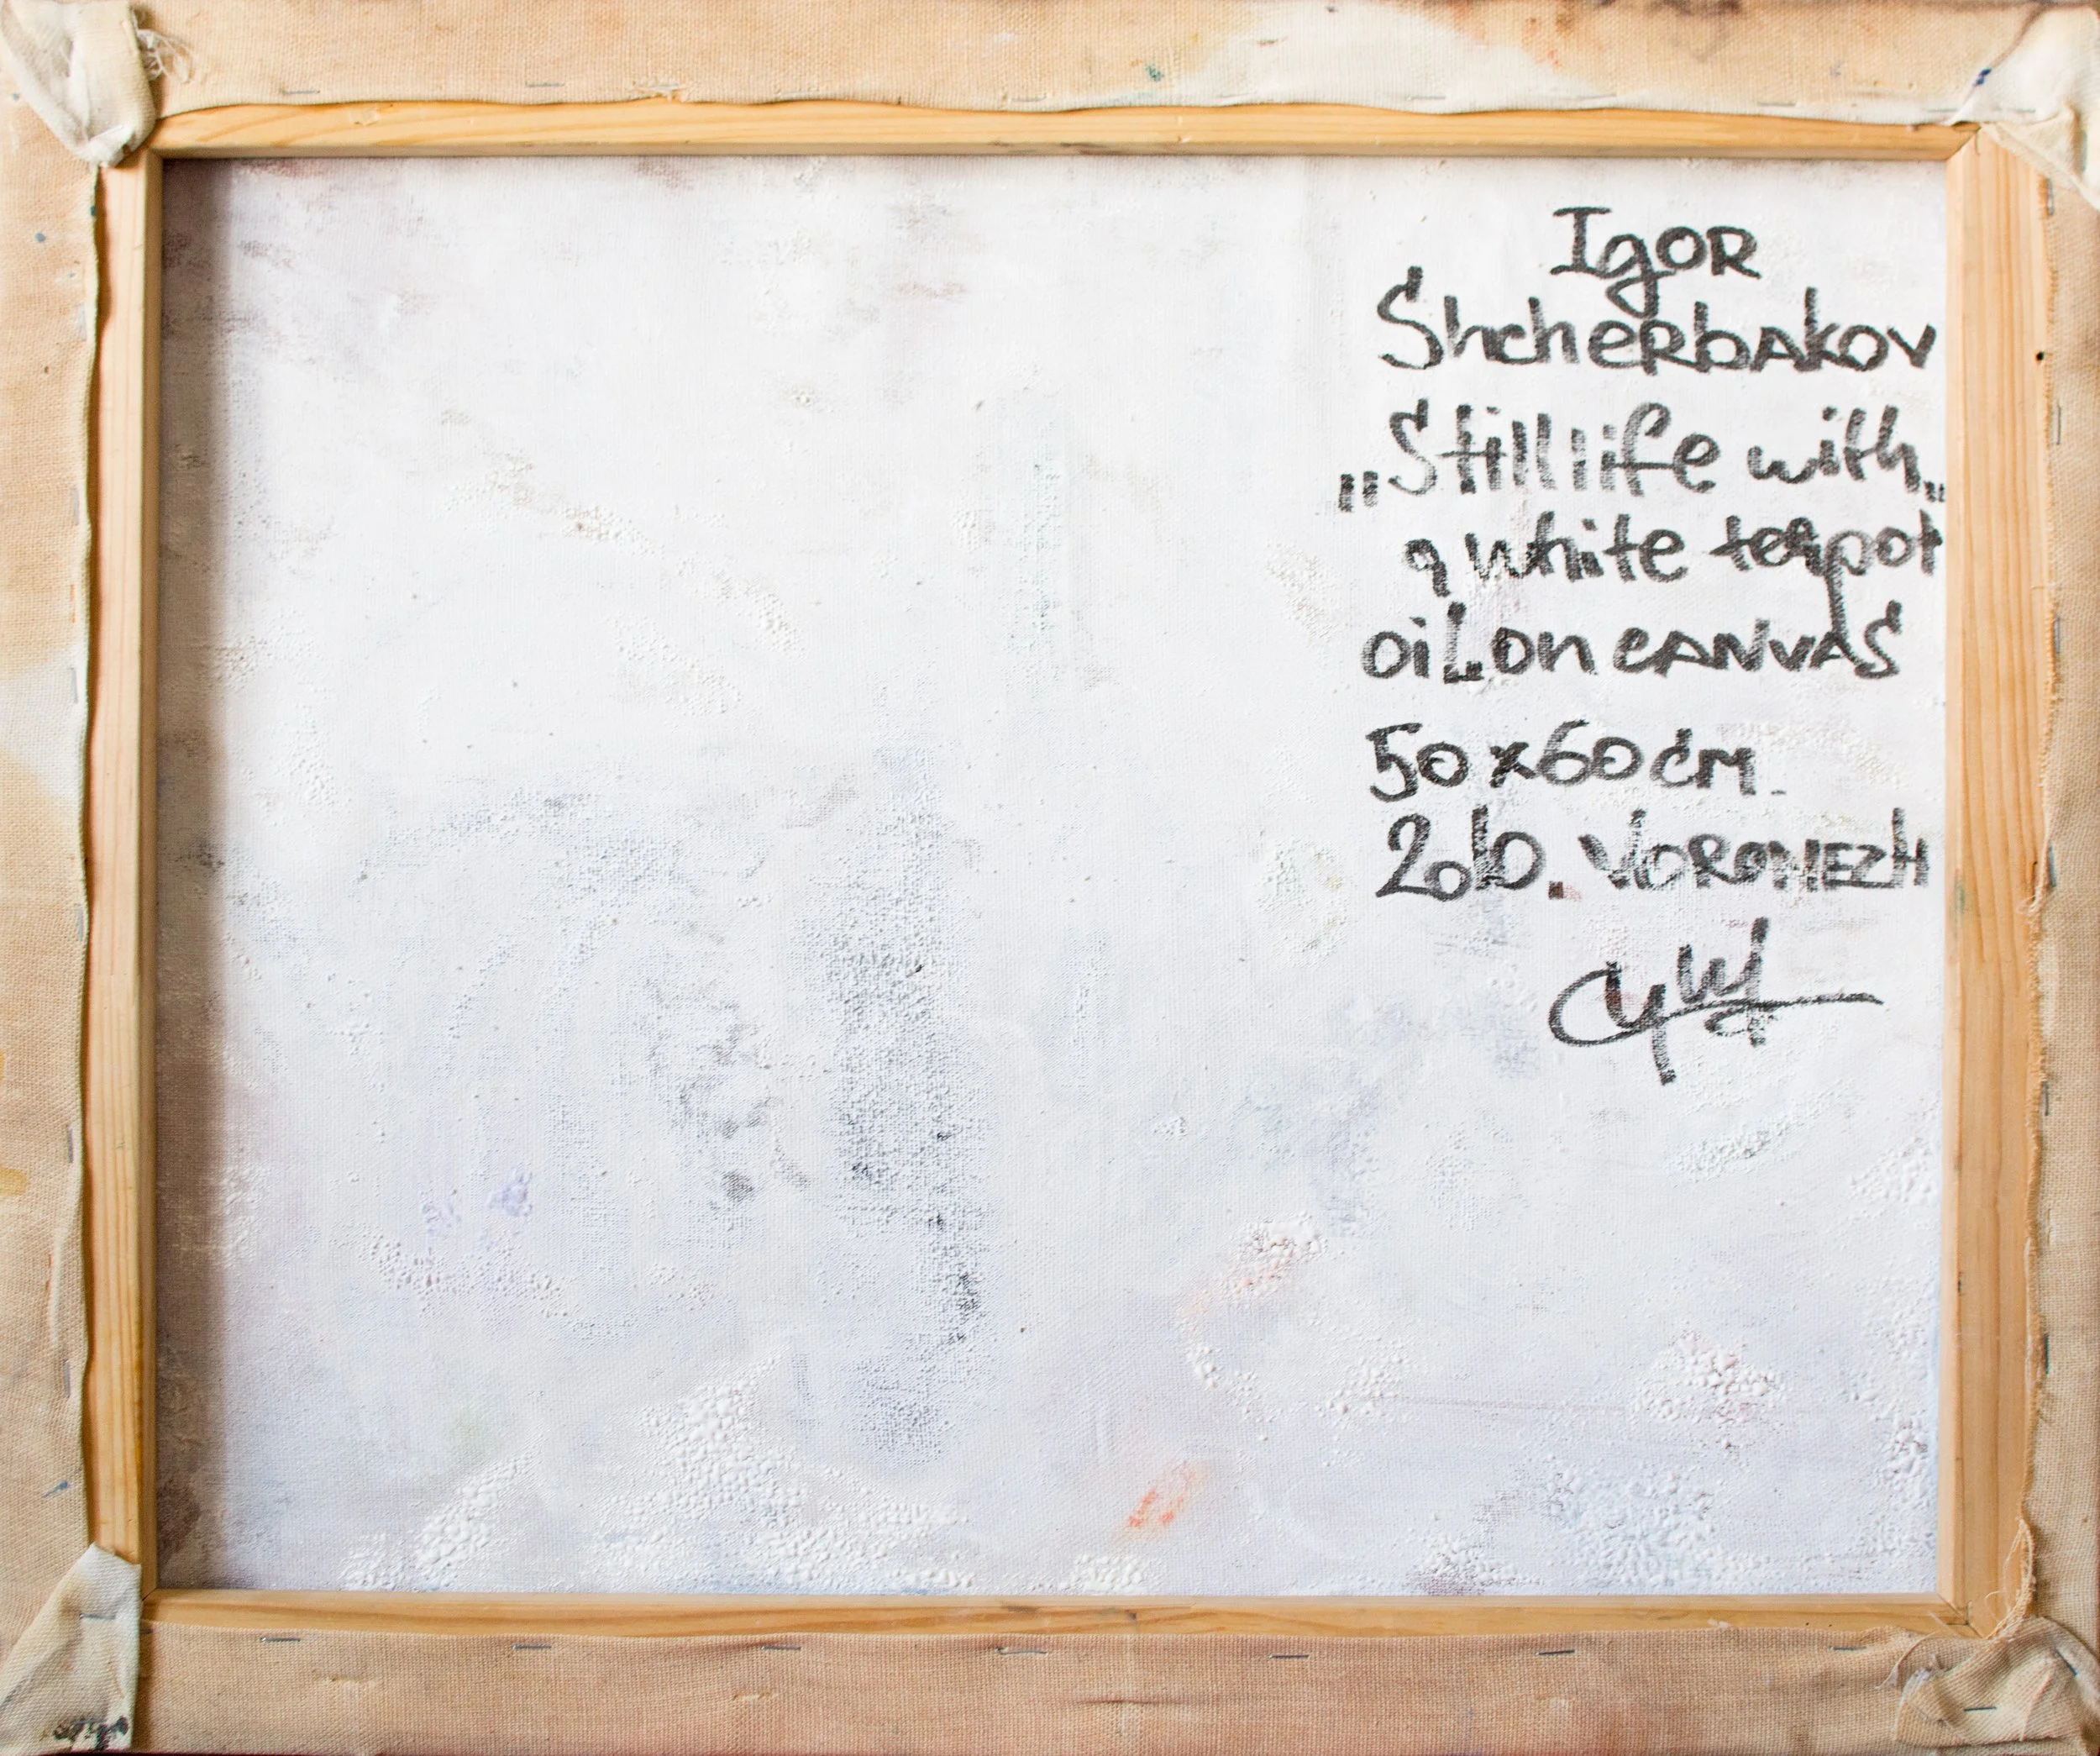 Igor
Shcherbakov
„Still life with„
a white teapot
oil on canvas
50x60 cm.
2010. Voronezh